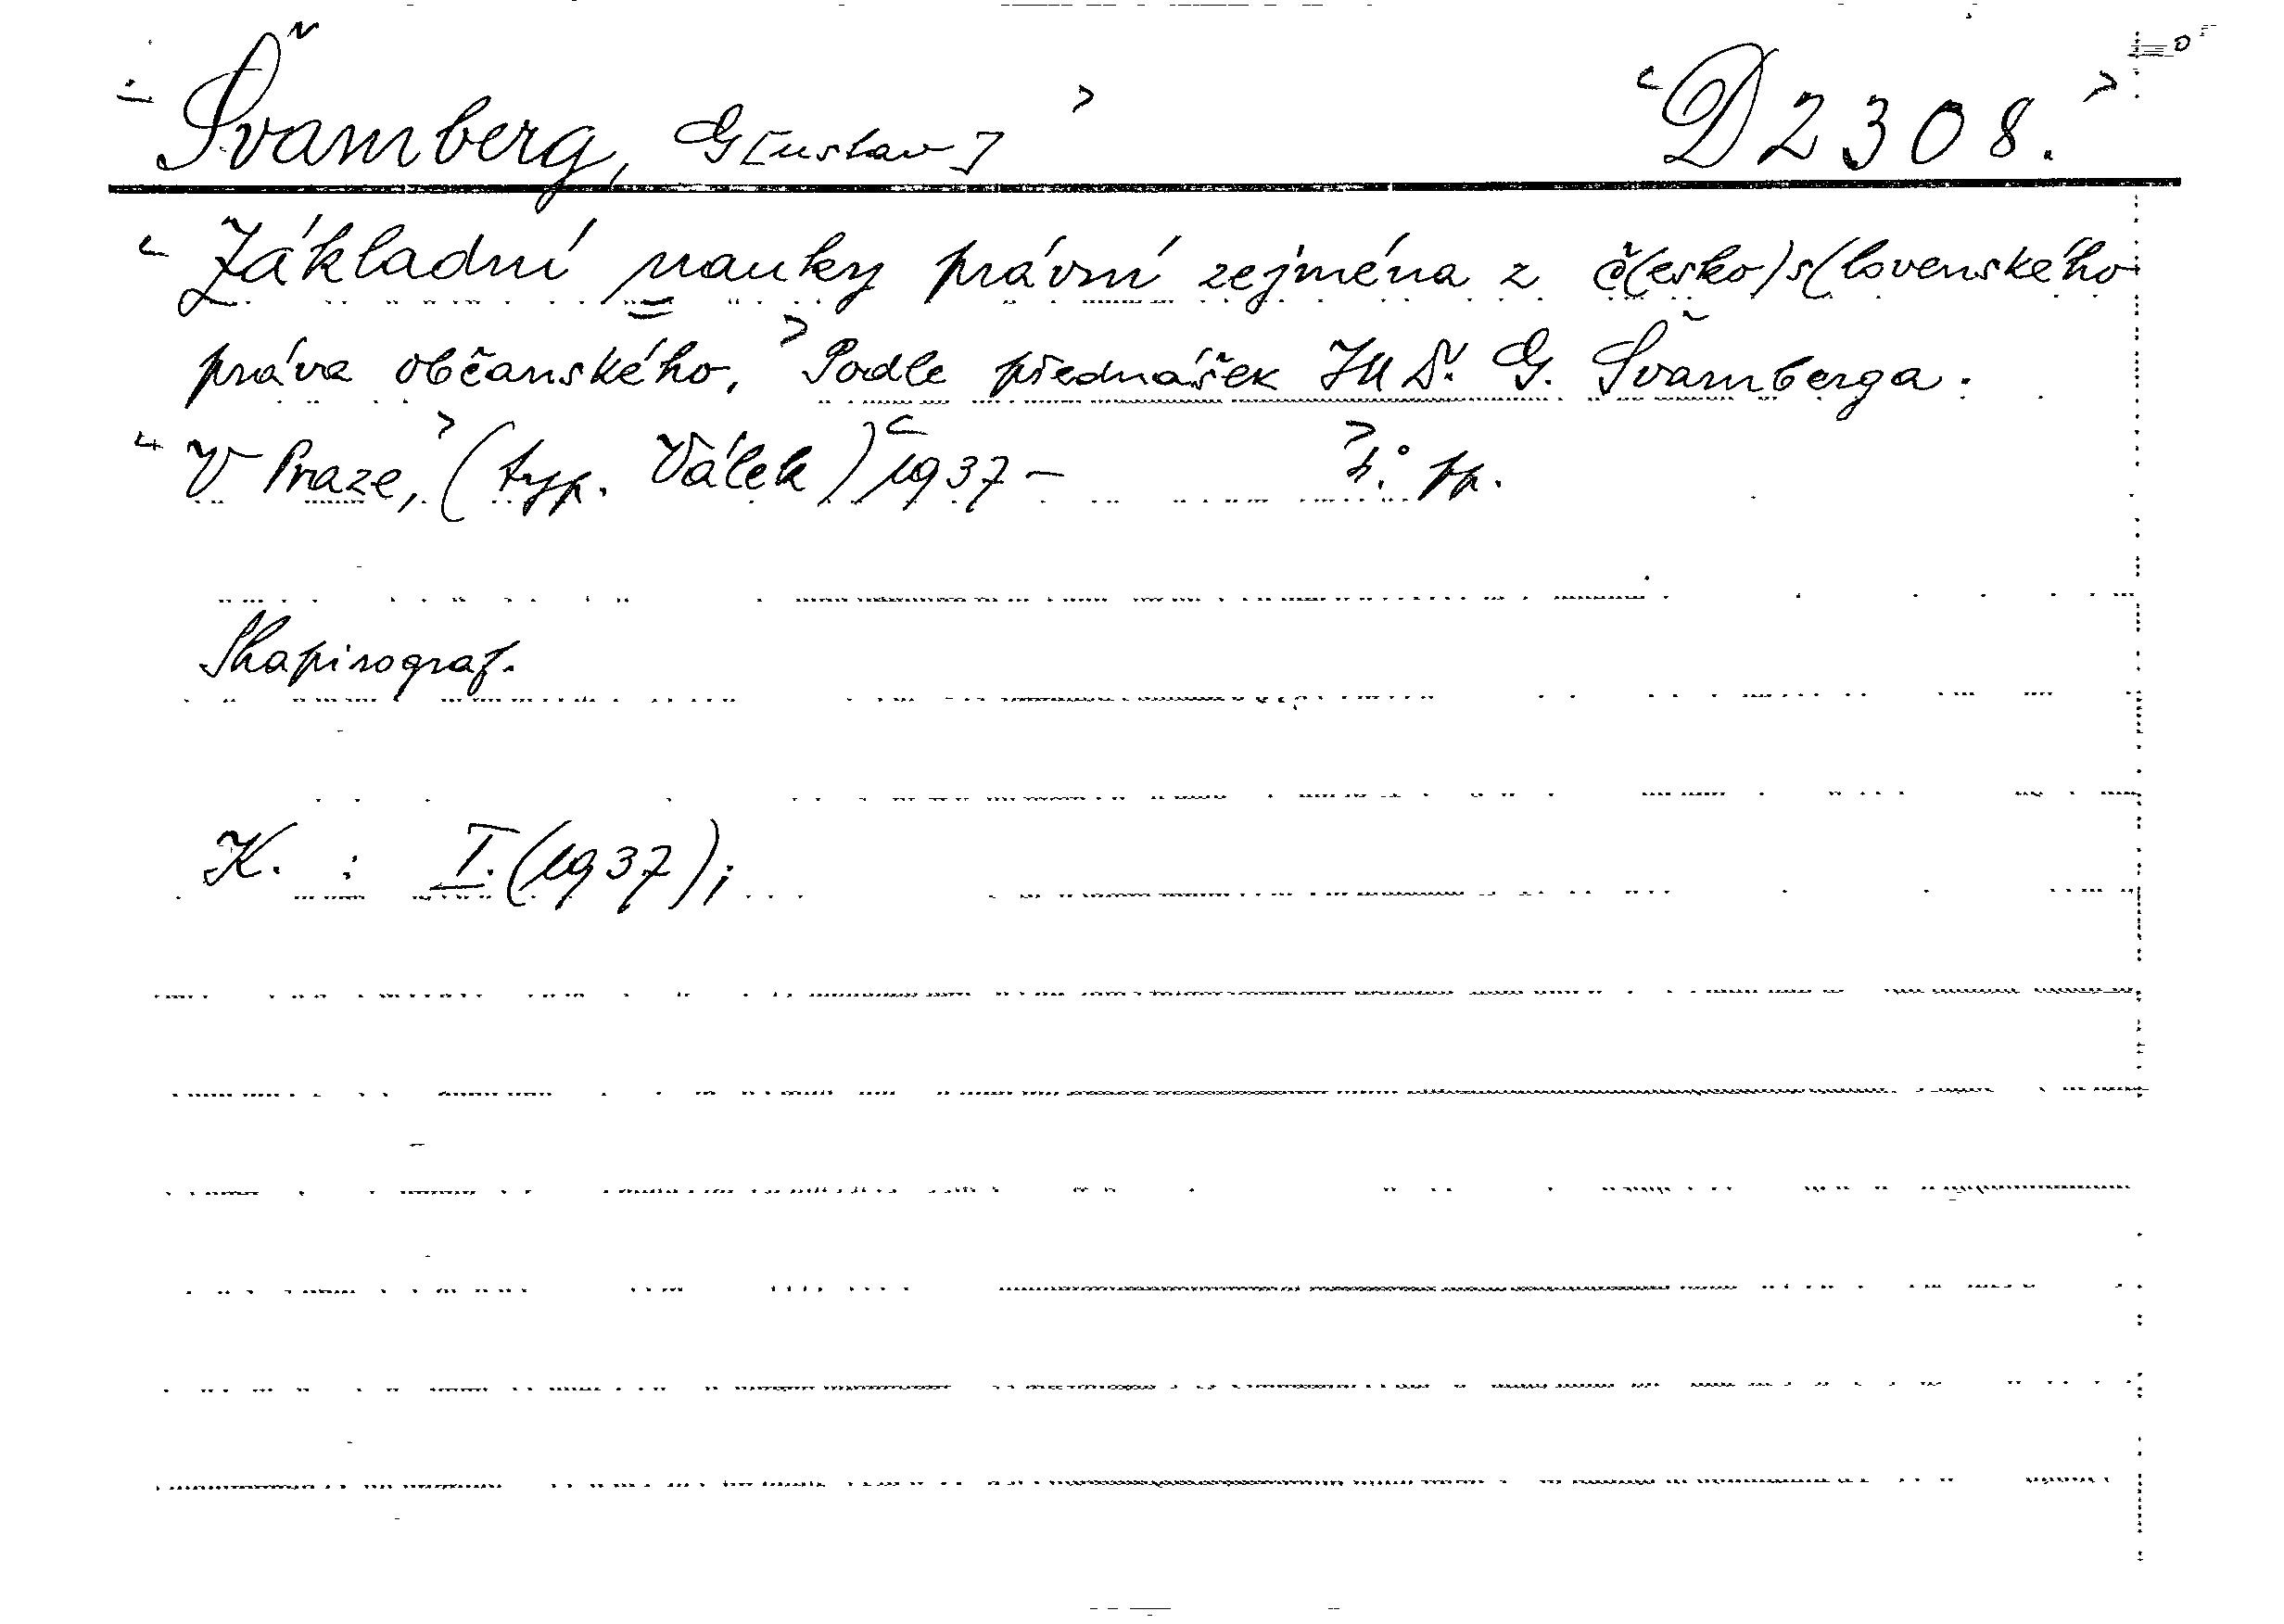 Švamberg, G[ustav] D 2308.
Základní nauky právní zejména z č(esko)s(lovenského
práva občanského. Podle přednášek JUDr. G. Švamberga.
V Praze, (typ. Válek) 1937 - 4.° pp.
Shapirograf.
K. : I. (1937);